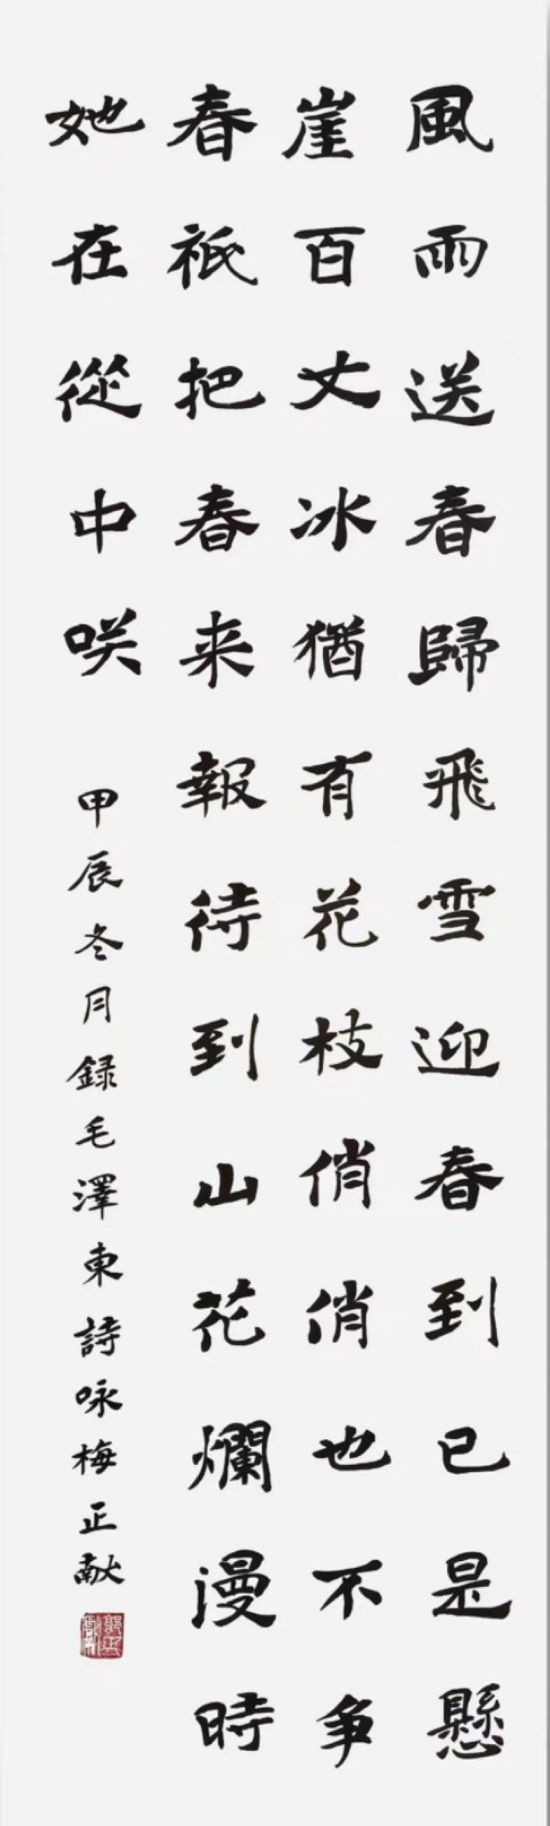 風雨送春歸飛雪迎春到已是懸
崖百丈冰猶有花枝俏俏也不争
春祇把春来報待到山花爛漫時
她在從中咲
甲辰冬月録毛澤東詩咏梅正献